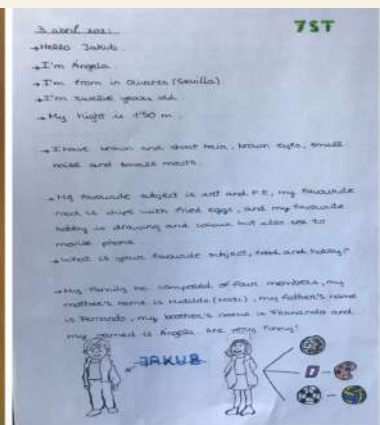 7ST
3 abril 2021.
→Hello Jakub.
→I'm Ángela
→I'm from in Olivares (Sevilla)
→I'm twelve years old.
→My hight is 1'50 m.
→I have brown and short hair, brown eyes, small
noise and small mouth.
→My favourite subject is art and P.E, my favourite
food is chips with fried eggs, and my favourite
hobby is drawing and colour but also use to
movile phone
→What is your favourite subject, food and hobby?
→My family be composed of four members, my
mother's name is Matilde (Mati), my father's name
is Fernando, my brother's name is Fernando and
my named is Ángela. Are very funny!
JAKUB